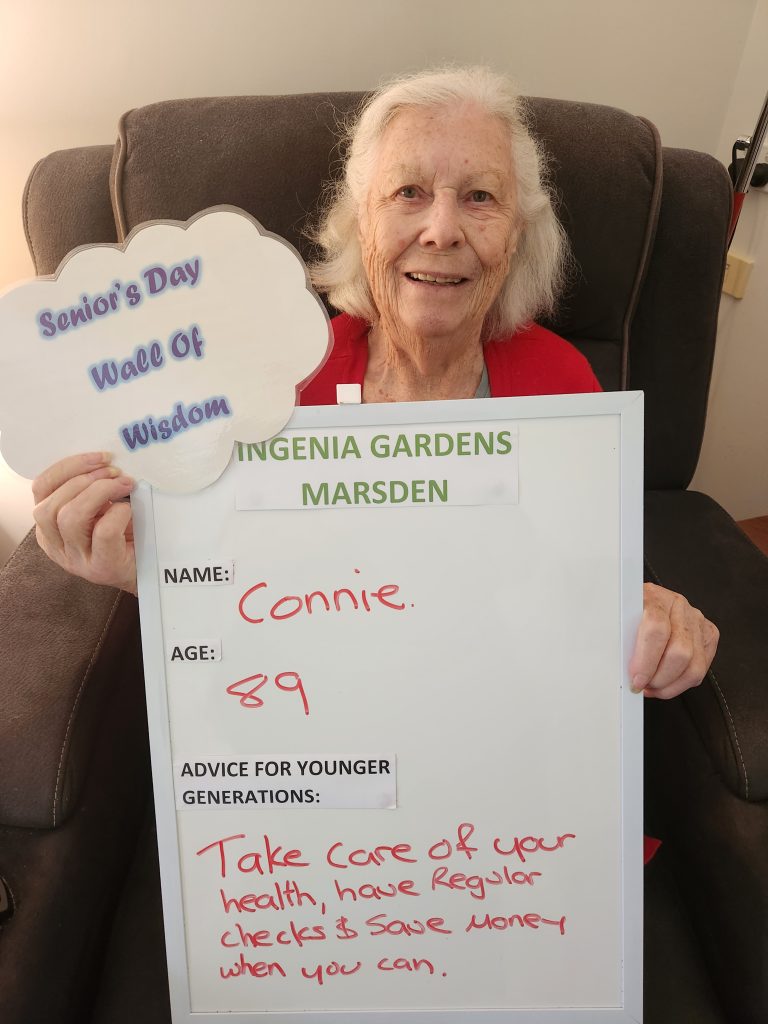 Senior's Day
Wall Of
Wisdom
INGENIA GARDENS
MARSDEN
NAME:
Connie.
AGE:
89
ADVICE FOR YOUNGER
GENERATIONS:
Take care of your
health, have Regular
checks & Save Money
when you can.